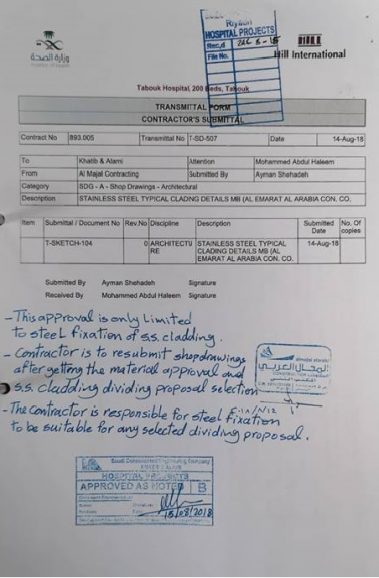 Riyadh
HOSPITAL PROJECTS
Rec,d
File No.
وزارة الصحة
Hill International
Tabouk Hospital, 200 Beds, Tabouk
TRANSMITTAL FORM
CONTRACTOR'S SUBMITTAL
Contract No 893.005 Transmittal No T-SD-507 Date 14-Aug-18
To Khatib & Alami Attention Mohammed Abdul Haleem
From Al Majal Contracting Submitted By Ayman Shehadeh
Category SDG - A - Shop Drawings - Architectural
Description STAINLESS STEEL TYPICAL CLADING DETAILS MB (AL EMARAT AL ARABIA CON. CO.
Item Submittal / Document No Rev.No Discipline Description Submitted Date No. Of copies
T-SKETCH-104 0 ARCHITECTU RE STAINLESS STEEL TYPICAL CLADDING DETAILS MB (AL EMARAT AL ARABIA CON. CO. 14-Aug-18
Submitted By Ayman Shehadeh Signature
Received By Mohammed Abdul Haleem Signature
- This approval is only limited
to steel fixation of s.s. cladding.
- Contractor is to resubmit shopdrawings
after getting the material approval and
s.s. cladding dividing proposal selection
- The contractor is responsible for steel fixation
to be suitable for any selected dividing proposal.
almajal alarabi
المجال العربي
Saudi Consolidated Engineering Company
KHATIB & ALAMI
HOSPITAL PROJECTS
APPROVED AS NOTED B
15/08/2018